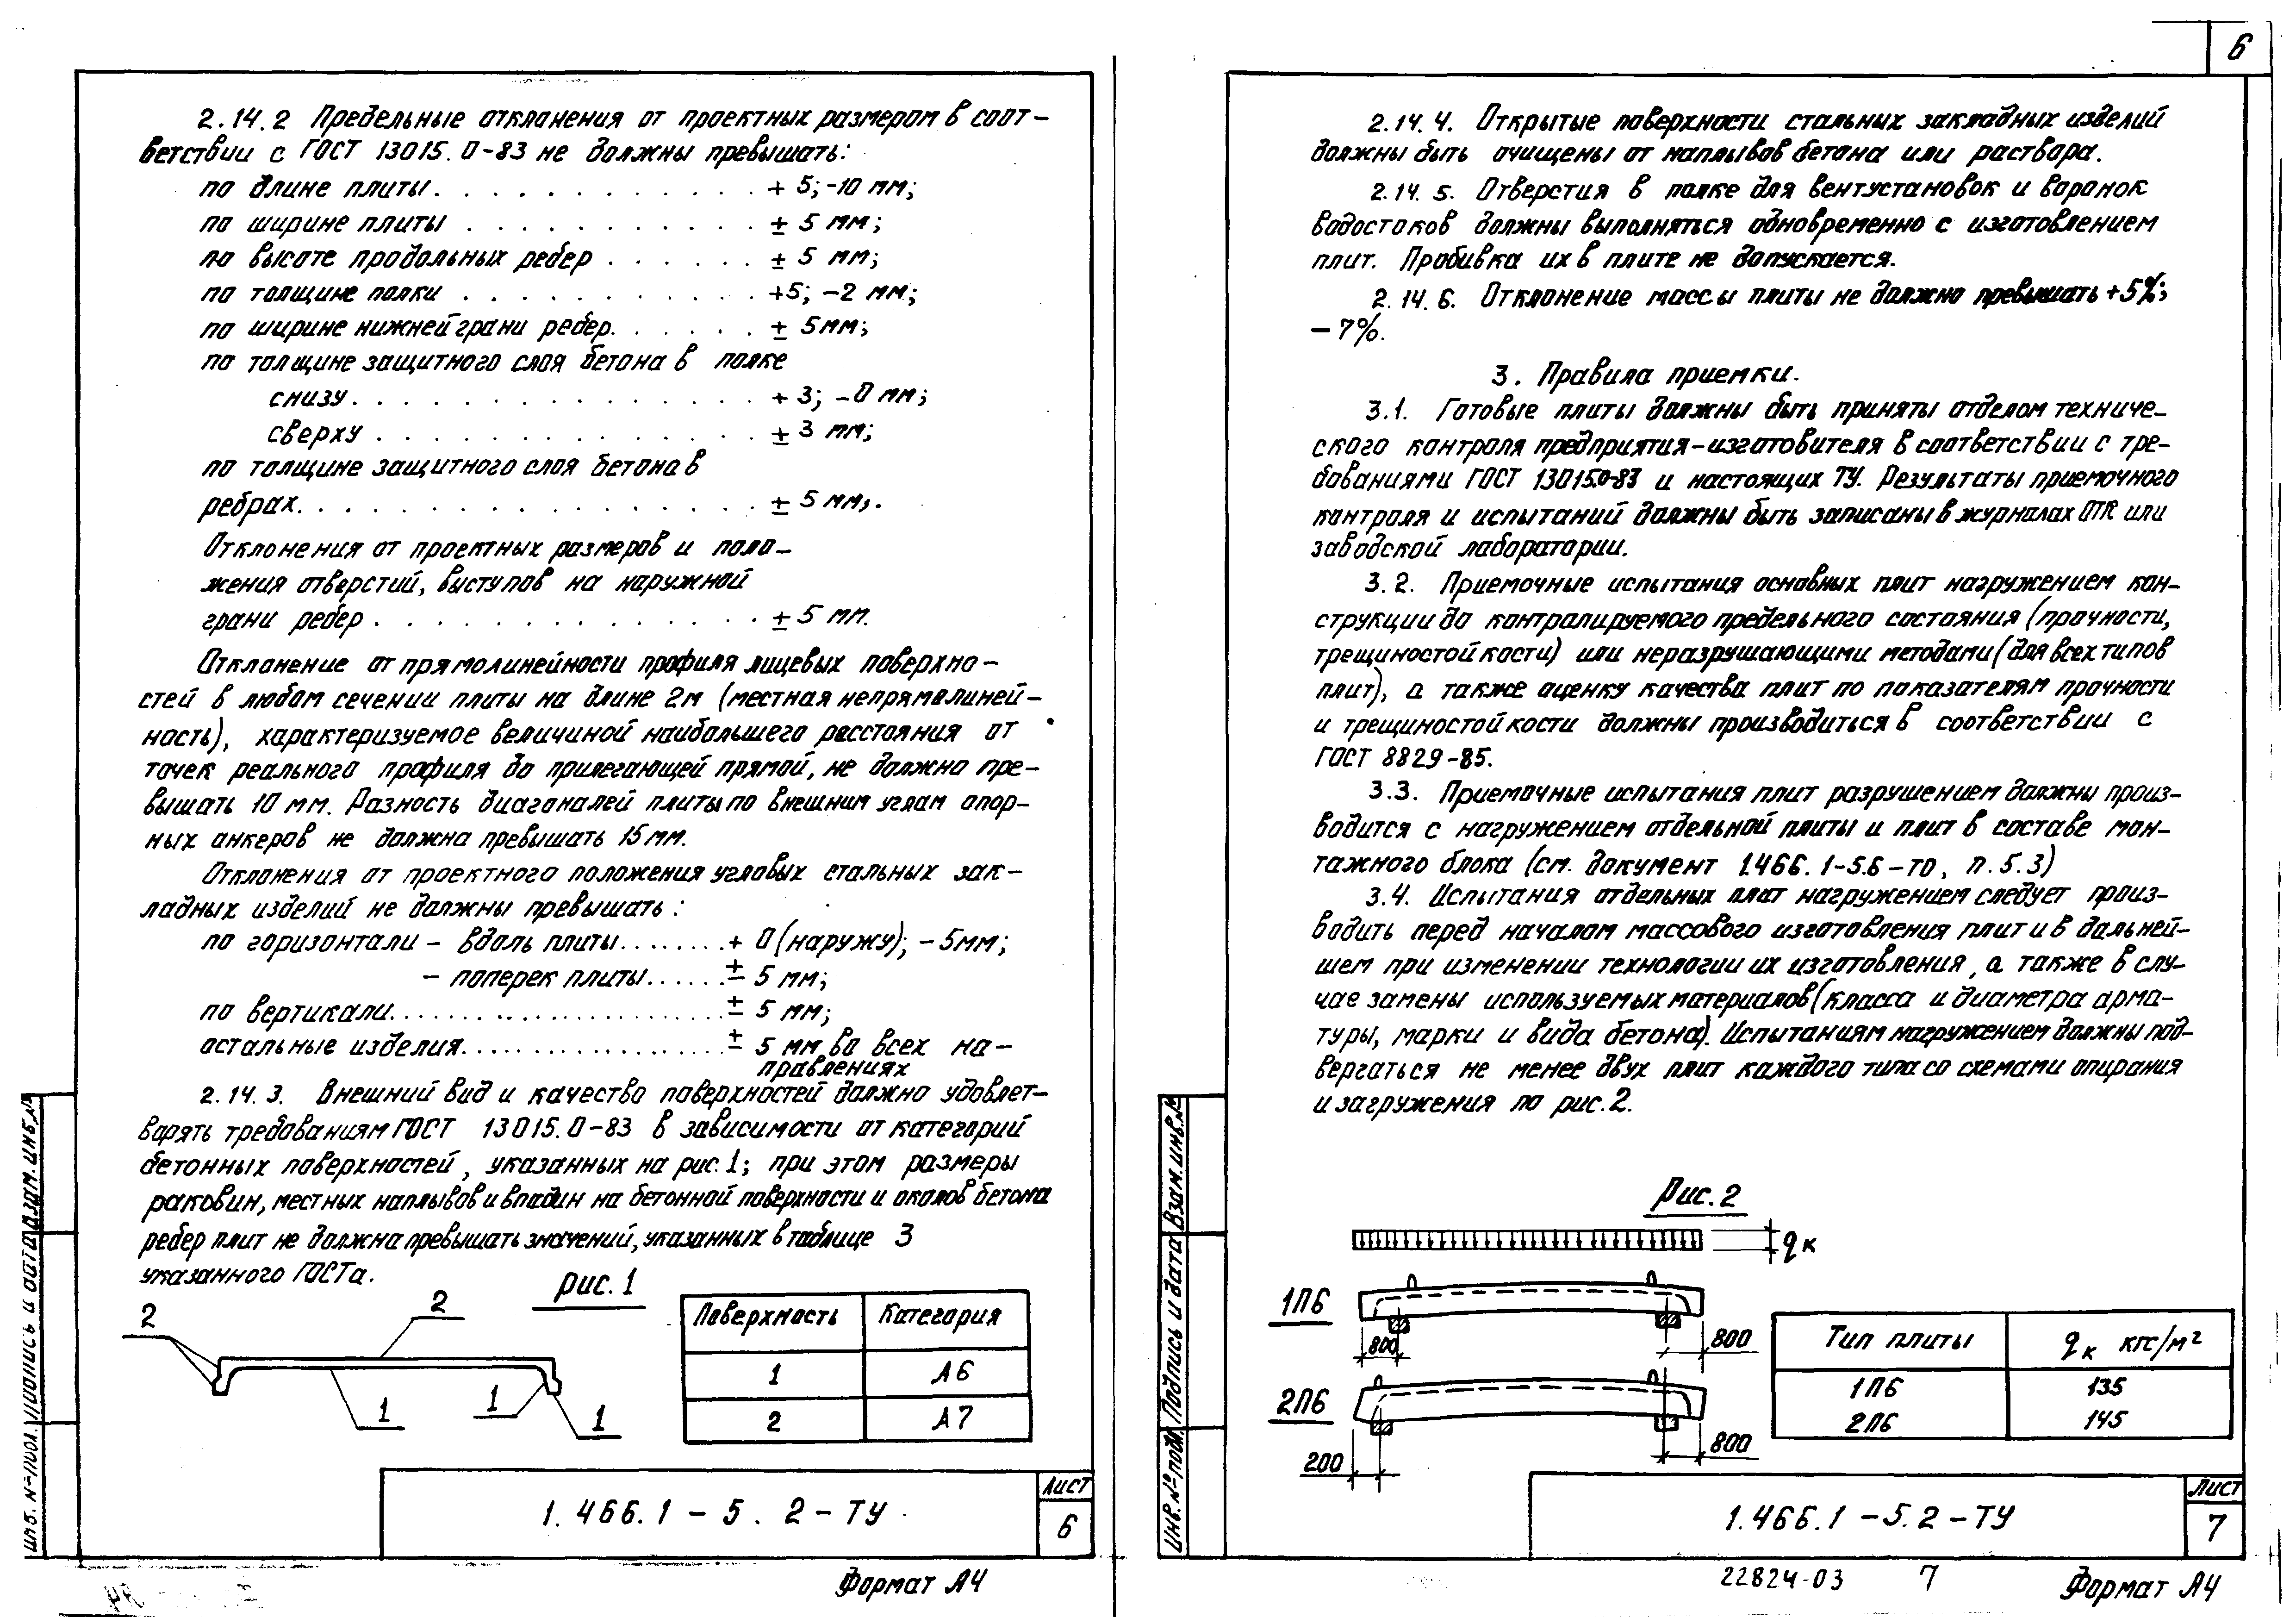 2.14.2 Предельные отклонения от проектных размером в соот-
ветствии с ГОСТ 13015.0-83 не должны превышать:
по длине плиты. . . . . . . . . . . . . + 5; -10 мм;
по ширине плиты . . . . . . . . . . . . ± 5 мм;
по высоте продольных ребер . . . . . . ± 5 мм;
по толщине полки . . . . . . . . . . . +5; -2 мм;
по ширине нижней грани ребер. . . . . . ± 5мм;
по толщине защитного слоя бетона в полке
снизу. . . . . . . . . . . . . . . + 3; -0 мм;
сверху . . . . . . . . . . . . . . ± 3 мм;
по толщине защитного слоя бетона в
ребрах. . . . . . . . . . . . . . . . . ± 5 мм;.
Отклонения от проектных размеров и поло-
жения отверстий, выступов на наружной
грани ребер . . . . . . . . . . . . . . ± 5 мм.
Отклонение от прямолинейности профиля лицевых поверхно-
стей в любом сечении плиты на длине 2м (местная непрямолиней-
ность), характеризуемое величиной наибольшего расстояния от
точек реального профиля до прилегающей прямой, не должно пре-
вышать 10 мм. Разность диагоналей плиты по внешним углам опор-
ных анкеров не должна превышать 15мм.
Отклонения от проектного положения угловых стальных зак-
ладных изделий не должны превышать:
по горизонтали - вдоль плиты........+ 0 (наружу); - 5мм;
- поперек плиты......± 5 мм;
по вертикали.......................± 5 мм;
остальные изделия..................± 5 мм во всех на-
правлениях
2.14.3. Внешний вид и качество поверхностей должно удовлет-
ворять требованиям ГОСТ 13015.0-83 в зависимости от категорий
бетонных поверхностей, указанных на рис.1; при этом размеры
раковин, местных наплывов и впадин на бетонной поверхности и околов бетона
ребер плит не должна превышать значений, указанных в таблице 3
указанного ГОСТа.
рис. 1
2
2
1
1
1
Поверхность Категория
1 А6
2 А7
1.466.1-5.2-ТУ
Лист
6
Формат А4
Взам. инв.№
Подпись и дата
Инв. № подл.
6
2.14.4. Открытые поверхности стальных закладных изделий
должны быть очищены от наплывов бетона или раствора.
2.14.5. Отверстия в полке для вентустановок и воронок
водостоков должны выполняться одновременно с изготовлением
плит. Пробивка их в плите не допускается.
2.14.6. Отклонение массы плиты не должно превышать +5%;
-7%.
3. Правила приемки.
3.1. Готовые плиты должны быть приняты отделом техниче-
ского контроля предприятия-изготовителя в соответствии с тре-
бованиями ГОСТ 13015.0-83 и настоящих ТУ. Результаты приемочного
контроля и испытаний должны быть записаны в журналах ОТК или
заводской лаборатории.
3.2. Приемочные испытания основных плит нагружением кон-
струкции до контролируемого предельного состояния (прочности,
трещиностойкости) или неразрушающими методами (для всех типов
плит), а также оценку качества плит по показателям прочности
и трещиностойкости должны производиться в соответствии с
ГОСТ 8829-85.
3.3. Приемочные испытания плит разрушением должны произ-
водится с нагружением отдельной плиты и плит в составе мон-
тажного блока (см. документ 1.466.1-5.6-ТО, п. 5.3)
3.4. Испытания отдельных плат нагружением следует произ-
водить перед началом массового изготовления плит и в дальней-
шем при изменении технологии их изготовления, а также в слу-
чае замены используемых материалов (класса и диаметра арма-
туры, марки и вида бетона). Испытаниям нагружением должны под-
вергаться не менее двух плит каждого типа со схемами опирания
и загружения по рис.2.
Рис. 2
qк
1П6
800
800
2П6
200
800
Тип плиты qк кгс/м²
1П6 135
2П6 145
1.466.1-5.2-ТУ
Лист
7
22824-03 7
Формат А4
Взам. инв.№
Подпись и дата
Инв. № подл.